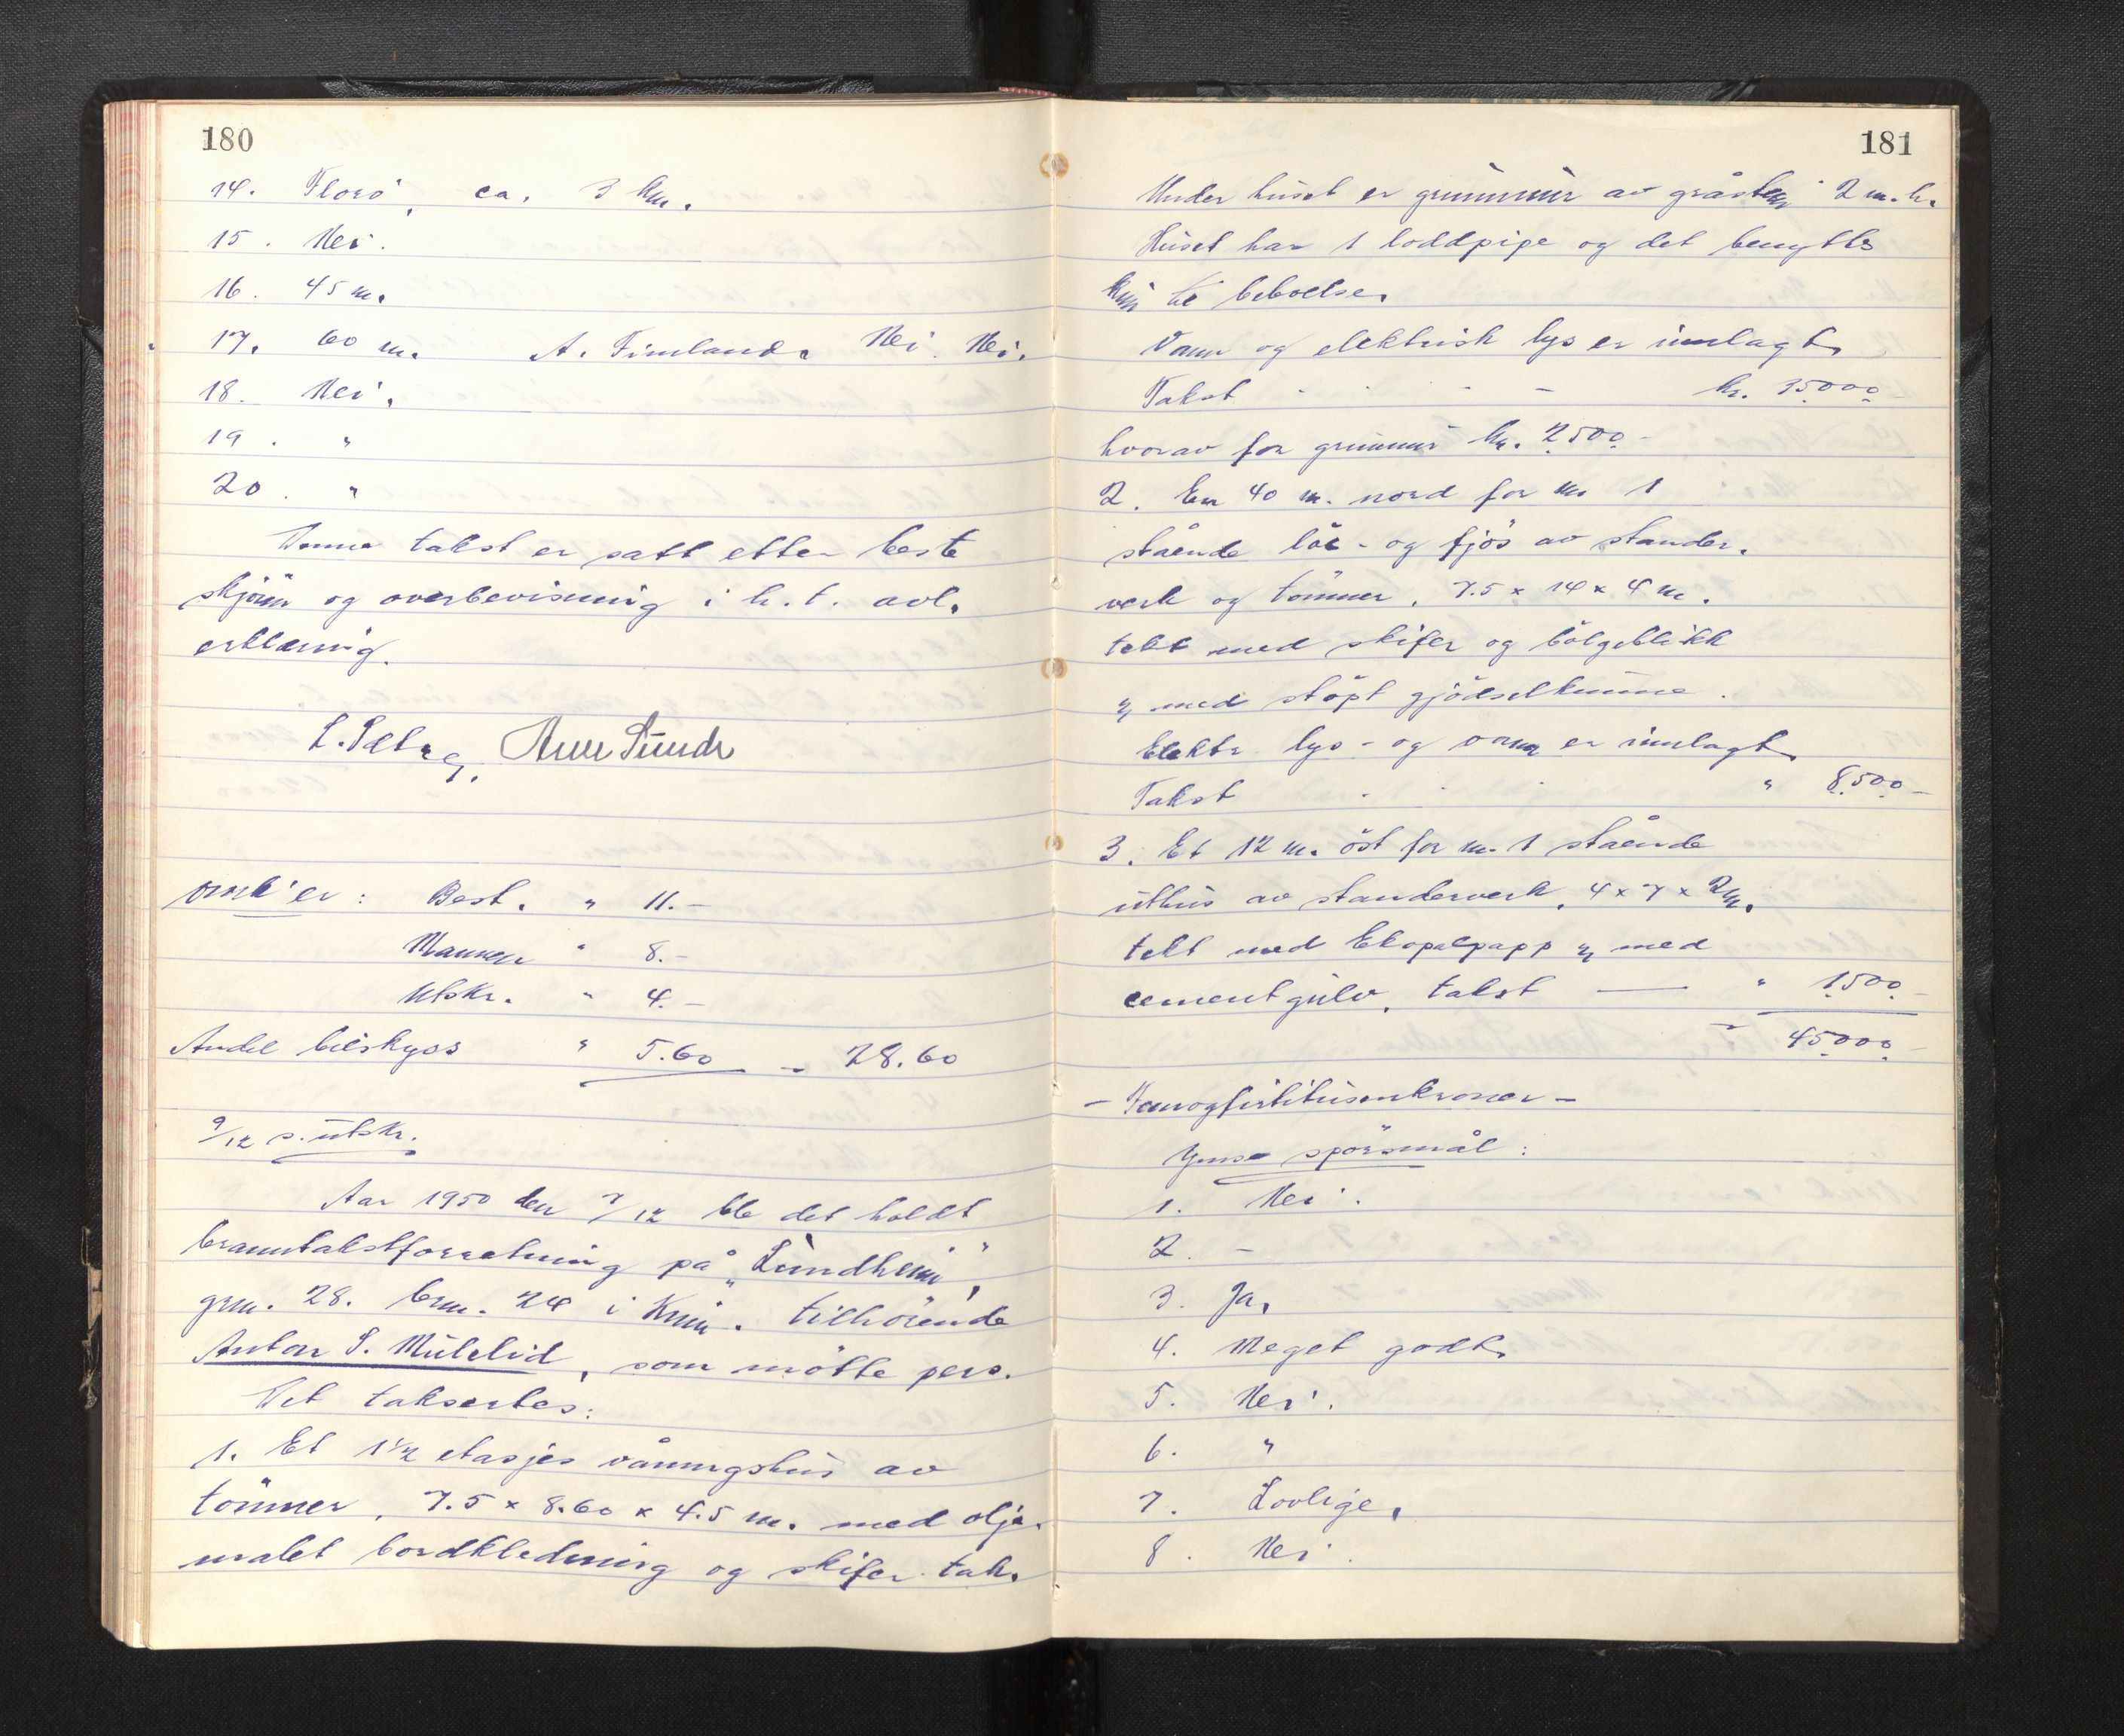 180
14. Florö, ca. 3 km.
15. Nei.
16. 45 m.
17. 60 m. A. Fimland. Nei. Nei.
18. Nei.
19. "
20. "
Denne takst er satt etter beste
skjönn og overbevisning i h.t. avl.
erklæring.
L. Sæbrg, Arne Sunde
Omk'er: Best. " 11.-
Mannen " 8.-
Utskr. " 4.-
Andel bilskyss " 5.60 - 28.60
9/12 s. utskr.
Aar 1950 den 7/12 ble det holdt
branntakstforretning på „Lundheim",
grn. 28. brn. 24 i Kinn. tilhörende
Anton S. Mulelid, som mötte pers.
Det taksertes:
1. Et 1½ etasjes våningshus av
tömmer, 7.5 x 8.60 x 4.5 m. med olje-
malet bordkledning og skifer tak.
181
Under huset er grunnmur av gråsten 2 m. h.
Huset har 1 loddpipe og det benyttes
kun til beboelse.
Vann og elektrisk lys er innlagt.
Takst - - - - kr. 35000-
hvorav for grunnmur kr. 2500.-
2. En 40 m. nord for nr 1
stående löe- og fjös av stander-
verk og tömmer, 7.5 x 14 x 4 m.
tekt med skifer og bölgeblikk
og med stöpt gjödselkumme.
Elektr. lys- og vann er innlagt.
Takst - - - " 8.500-
3. Et 12 m. öst for nr. 1 stående
uthus av standerverk, 4 x 7 x 2 m.
tekt med Ekopalpapp og med
cementgulv, takst — " 1500-
- 45000-
- Femogfirtitusenkroner -
Ymse spörsmål:
1. Nei.
2. -
3. Ja.
4. Meget godt.
5. Nei.
6. "
7. Lovlige.
8. Nei.